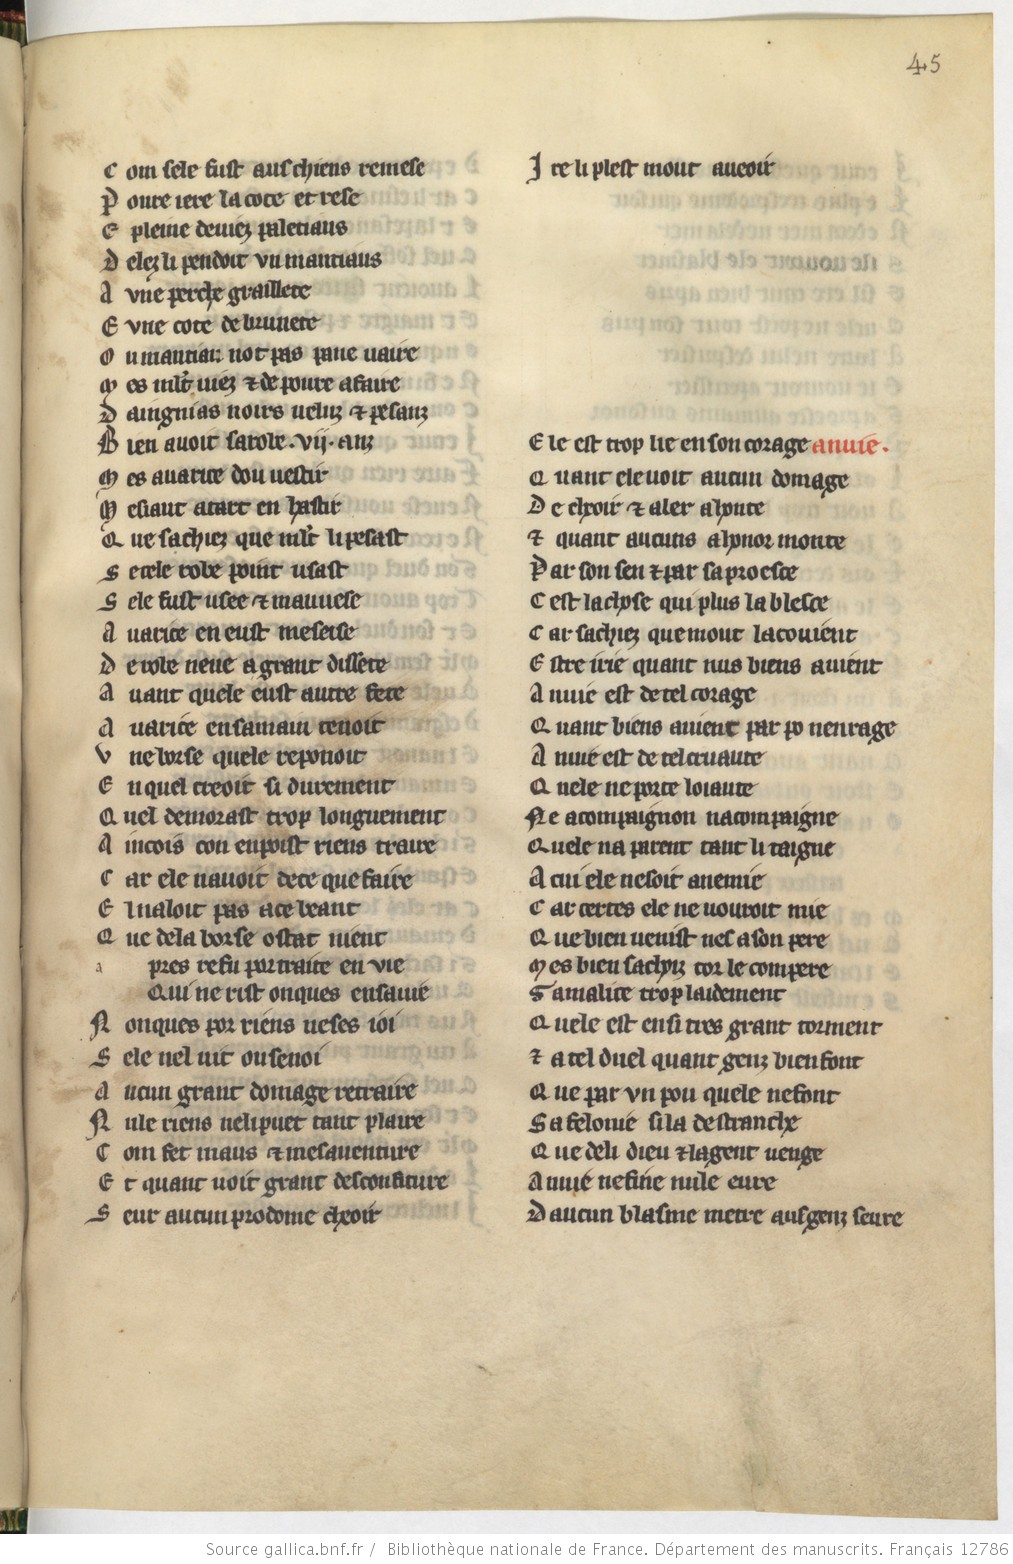 45
C om sele fust aus chiens remese
P oure iere la cote et rese
E pleine de viez paletiaus
D elez li pendoit vn mantiaus
A vne perche graillete
E vne cote de brunete
O u mantiau not pas pane vaire
M es mlt viez ⁊ de poure afaire
D aingniaus noirs veluz ⁊ pesanz
B ien auoit sa robe .vij. anz
M es auarice dou vestir
M esiaut a tart en hastir
Q ue sachiez que mlt li pesast
S e cele robe point usast
S ele fust usee ⁊ mauuese
A uarice en eust mesese
D e robe neue a grant dissete
A uant quele eust autre fete
A uarice en sa main tenoit
V ne borse quele reponoit
E n quel creoit si durement
Q uel demorast trop longuement
A incois con en poist riens traire
C ar ele nauoit de ce que faire
E l naloit pas a ce beant
Q ue de la borse ostat nient
a pres refu portraite en vie
Qui ne rist onques en sa vie
N onques por riens ne ses ioi
S ele nel vit ou se noi
A ucun grant domage retraire
N ule riens ne li puet tant plaire
C om fet maus ⁊ mesauenture
E t quant uoit grant desconfiture
S eur aucun prodome cheoir
I ce li plest mout a ueoir
E le est trop lie en son corage anuie.
Q uant ele uoit aucun domage
D e choir ⁊ aler a honte
⁊ quant aucuns a honor monte
P ar son sen ⁊ par sa proesce
C est la chose qui plus la blesce
C ar sachiez que mout la couient
E stre irie quant nus biens auient
A nuie est de tel corage
Q uant biens auient par po nenrage
A nuie est de tel cruaute
Q uele ne porte loiaute
N e a compaignon na compaigne
Q uele na parent tant li taigne
A cui ele ne soit anemie
C ar certes ele ne uouroit mie
Q ue bien uenist nes a son pere
M es bien sachiz cor le compere
S a malice trop laidement
Q uele est en si tres grant torment
⁊ a tel duel quant genz bien font
Q ue par vn pou quele ne font
S a felonie si la destranche
Q ue de li dieu ⁊ la gent uenge
A nuie ne fine nule eure
D aucun blasme metre aus genz seure
Source gallica.bnf.fr / Bibliothèque nationale de France. Département des manuscrits. Français 12786